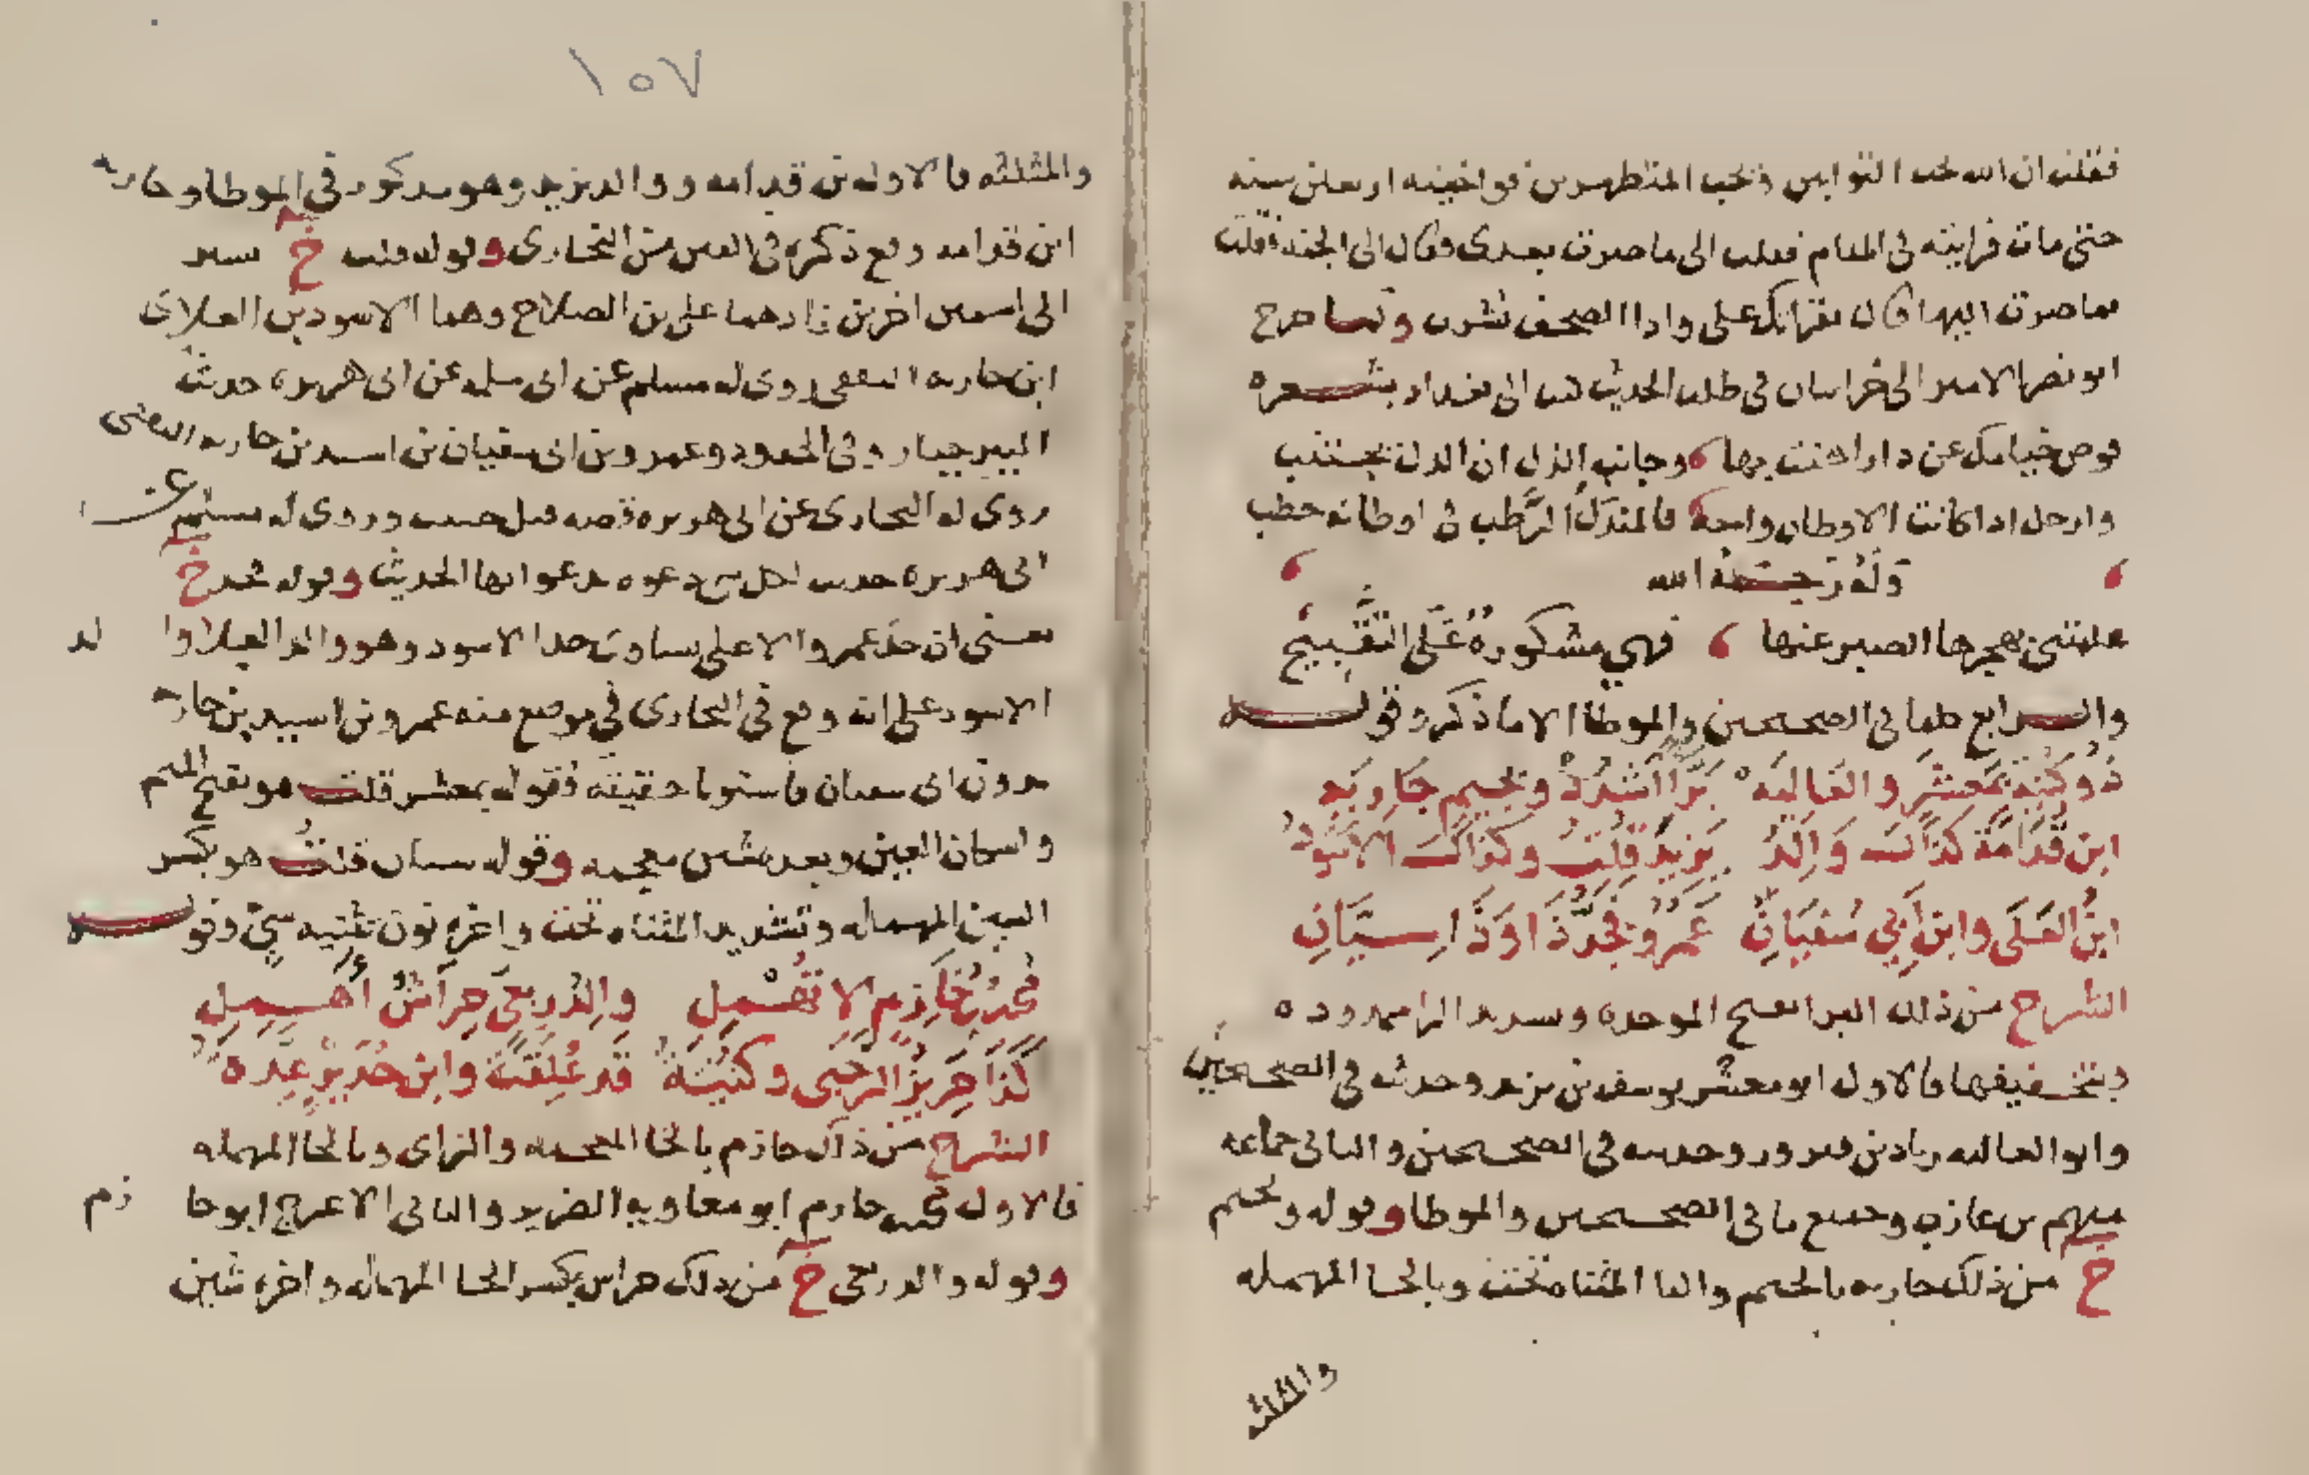 فقلت ان الله يحب التوابين ويحب المتطهرين فواخيته اربعين سنه
حتى مات فرايته في المنام فقلت الى ما صرت بعدى فقال الى الجنة قلت
بما صرت اليها قال بقرانك على واذا الصحف نشرت ولما خرج
ابو نصر الامير الى خراسان في طلب الحديث كتب الى بغداد بشعره
قوض خيامك عن دار اهنت بها وجانب الذل ان الذل يجتنب
وارحل اذا كانت الاوطان واحة فالمندل الرطب في اوطانه حطب
وله رحمة الله
علمتني بهجرها الصبر عنها فهي مشكورة على التقبيح
والرابع طما في الصحيحين والموطا الا ما ذكر وقوله
ذو كنية بمعشر والعاليه برا اشدد وبجيم جاريه
ابن قدامة كذاك والد يزيد قلت وكذاك الاسود
ابن العلى وابن ابي سفيان عمرو فجد ذا وذا سيان
الشرح من ذلك البرا بفتح الموحده وتشديد الرا ممدوده
وبتخفيفها فالاول ابو معشر يوسف بن يزيد وحديثه في الصحيحين
وابو العاليه زياد بن فيروز وحديثه في الصحيحين والثاني جماعه
منهم بن عازب وجميع ما في الصحيحين والموطا وقوله وبجيم
خ من ذلك جاريه بالجيم واليا المثناه تحت وبالحا المهمله
والمثلثه
١٥٧
والمثلثه فالاول بن قدامه ووالد يزيد وهو مذكور في الموطا وجاريه
ابن قدامه وقع ذكره في الفتن من البخارى وقوله قلت خ
الى اسمين اخرين زادهما على بن الصلاح وهما الاسود بن العلاى
ابن جاريه الثقفي روى له مسلم عن ابي سلمه عن ابي هريره حديث
البير جبار وفي الحدود وعمرو بن ابي سفيان بن اسيد بن جاريه الثقفي
روى له البخارى عن ابي هريره قصه قتل خبيب وروى له مسلم عن
ابي هريره حديث لكل نبي دعوه يدعو بها الحديث وقوله فجد خ
يعني ان جد عمرو الاعلى يساوى جد الاسود وهو والد العلا والد
الاسود على انه وقع في البخارى في موضع منه عمرو بن اسيد بن جاريه
بدون ابي سفيان فاستويا حقيقة فقوله بمعشر قلت هو بفتح الميم
واسكان العين وبعد شين معجمه وقوله سيان قلت هو بكسر
السين المهمله وتشديد المثناه تحت واخره نون تثنيه سي وقوله
محمد بن خازم لا تهمل والد ربعي حراش اهمل
كذا حريز الرحبي وكنية قد علقت وابن حدير عده
الشرح من ذلك خازم بالخا المعجمه والزاى وبالحا المهمله
فالاول محمد خازم ابو معاويه الضرير والثاني الاعرج ابو حازم
وقوله والد ربعي خ من ذلك حراش بكسر الحا المهمله واخره شين